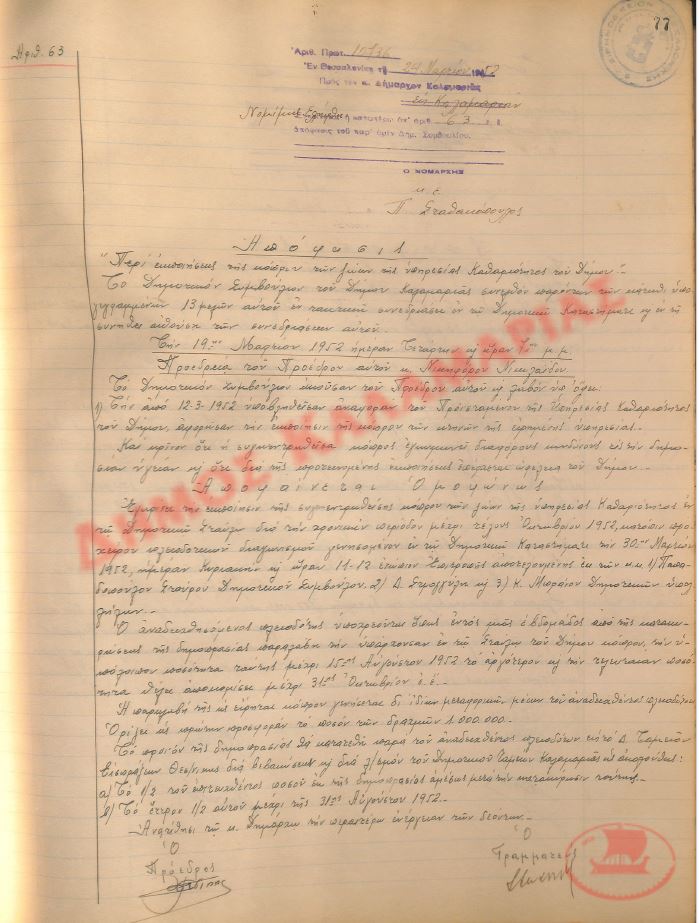 77
Αριθ. 63
Αριθ. Πρωτ. 10736
Έν Θεσσαλονίκη τῇ 24 Μαρτίου 1952
Πρὸς τὸν κ. Δήμαρχον Καλαμαριᾶς
εἰς Καλαμαριάν
ὑπ' ἀριθ. 63 ἐ.ἔ.
ἀπόφασις τοῦ παρ' ὑμῖν Δημ. Συμβουλίου.
Ο ΝΟΜΑΡΧΗΣ
Π. Σταθακόπουλος
Ἀπόφασις
"Περὶ ἐκποιήσεως τῆς κόπρου τῶν ζώων τῆς ὑπηρεσίας Καθαριότητος τοῦ Δήμου".
Τὸ Δημοτικὸν Συμβούλιον τοῦ Δήμου Καλαμαριᾶς συνελθὸν παρόντων τῶν κάτωθι ὑπο-
γεγραμμένων 13 μελῶν αὐτοῦ ἐν τακτικῇ συνεδριάσει ἐν τῷ Δημοτικῷ Καταστήματι κ ἐν τῇ
συνήθει αἰθούσῃ τῶν συνεδριάσεων αὐτοῦ.
Τὴν 19ην Μαρτίου 1952 ἡμέραν Τετάρτην κ ὥραν 7ην μ.μ.
Προεδρίᾳ τοῦ Προέδρου αὐτοῦ κ. Νικηφόρου Νικηλαΐδου.
Τὸ Δημοτικὸν Συμβούλιον ἀκοῦσαν τοῦ Προέδρου αὐτοῦ κ λαβὸν ὑπ' ὄψει:
1) Τὴν ἀπὸ 12-3-1952 ὑποβληθεῖσαν ἀναφορὰν τοῦ Προϊσταμένου τῆς Ὑπηρεσίας Καθαριότητος
τοῦ Δήμου, ἀφορῶσαν τὴν ἐκποίησιν τῆς κόπρου τῶν κτηνῶν τῆς εἰρημένης ὑπηρεσίας.
Καὶ κρῖνον ὅτι ἡ συγκεντρωθεῖσα κόπρος ἐγκυμονεῖ διαφόρους κινδύνους εἰς τὴν δημο-
σίαν ὑγείαν κ ὅτι διὰ τῆς προτεινομένης ἐκποιήσεως ἐπέρχεται ὠφέλεια τοῦ Δήμου.
Ἀποφαίνεται Ὁμοφώνως
Ἐγκρίνει τὴν ἐκποίησιν τῆς συγκεντρωθείσης κόπρου τῶν ζώων τῆς ὑπηρεσίας Καθαριότητος ἐν
τῷ Δημοτικῷ Σταύλῳ διὰ τὴν χρονικὴν περίοδον μέχρι τέλους Ὀκτωβρίου 1952, κατόπιν προ-
χείρου πλειοδοτικοῦ διαγωνισμοῦ γενησομένου ἐν τῷ Δημοτικῷ Καταστήματι τὴν 30ην Μαρτίου
1952, ἡμέραν Κυριακὴν κ ὥραν 11-12 ἐνώπιον Ἐπιτροπῆς ἀποτελουμένης ἐκ τῶν κ.κ. 1) Παπα-
δοπούλου Σταύρου Δημοτικοῦ Συμβούλου. 2) Δ. Στρογγύλη κ 3) Κ. Μωραΐου Δημοτικῶν ὑπαλ-
λήλων.
Ὁ ἀναδειχθησόμενος πλειοδότης ὑποχρεοῦται ὅπως ἐντὸς μιᾶς ἑβδομάδος ἀπὸ τῆς κατακυ-
ρώσεως τῆς δημοπρασίας παραλάβῃ τὴν ὑπάρχουσαν ἐν τῷ Σταύλῳ τοῦ Δήμου κόπρον, τὴν ὑ-
πόλοιπον ποσότητα ταύτης μέχρι 15ης Αὐγούστου 1952 τὸ ἀργότερον κ τὴν τελευταίαν ποσό-
τητα θέλει ἀποκομίσει μέχρι 31ης Ὀκτωβρίου ἐ.ἔ.
Ἡ παραλαβὴ τῆς ὡς εἴρηται κόπρου γενήσεται δι' ἰδίων μεταφορικῶν μέσων τοῦ ἀναδειχθέντος πλειοδότου
Ὁρίζει ὡς πρώτην προσφορὰν τὸ ποσὸν τῶν δραχμῶν 1.000.000.-
Τὸ προϊὸν τῆς δημοπρασίας θὰ κατατεθῇ παρὰ τοῦ ἀναδειχθέντος πλειοδότου εἰς τὸ Δ. Ταμεῖον
Εἰσπράξεων Θεσ/νίκης διὰ βεβαιώσεως κ διὰ λ/σμὸν τοῦ Δημοτικοῦ Ταμείου Καλαμαριᾶς ὡς ἀκολούθως:
α) Τὸ 1/2 τοῦ ἐπιτευχθέντος ποσοῦ ἐκ τῆς δημοπρασίας ἀμέσως μετὰ τὴν κατακύρωσιν ταύτης.
β) Τὸ ἕτερον 1/2 αὐτοῦ μέχρι τῆς 31ης Αὐγούστου 1952.
Ἀναθέτει τῷ κ. Δημάρχῳ τὴν περαιτέρω ἐνέργειαν τῶν δεόντων.
Ὁ
Πρόεδρος
Ὁ
Γραμματεὺς
ΔΗΜΟΣ ΚΑΛΑΜΑΡΙΑΣ